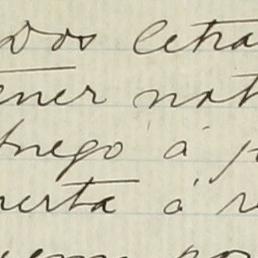 Dos letra
ener not
fuego á p
uerta ó r